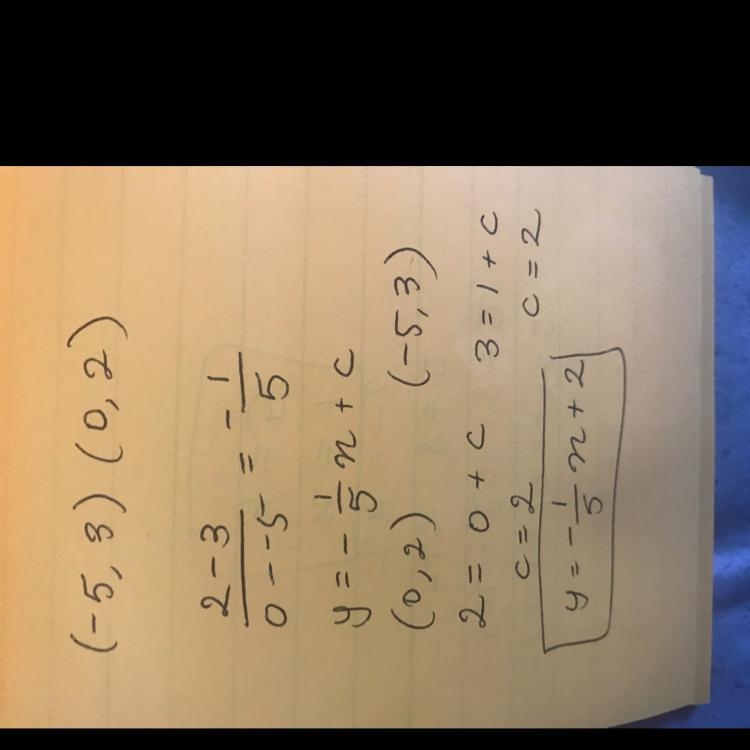 (-5, 3) (0, 2)
2 - 3 / 0 - -5 = - 1/5
y = - 1/5 x + c
(0, 2) (-5, 3)
2 = 0 + c 3 = 1 + c
c = 2 c = 2
y = - 1/5 x + 2